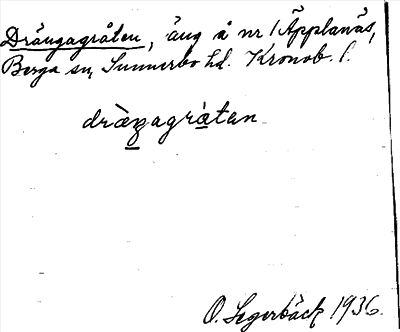 Drängagråten, äng å nr 1 Äpplanäs,
Berga sn, Sunnerbo hd. Kronob. l.
dràŋagrà̱tan
O. Segerbäck 1936.